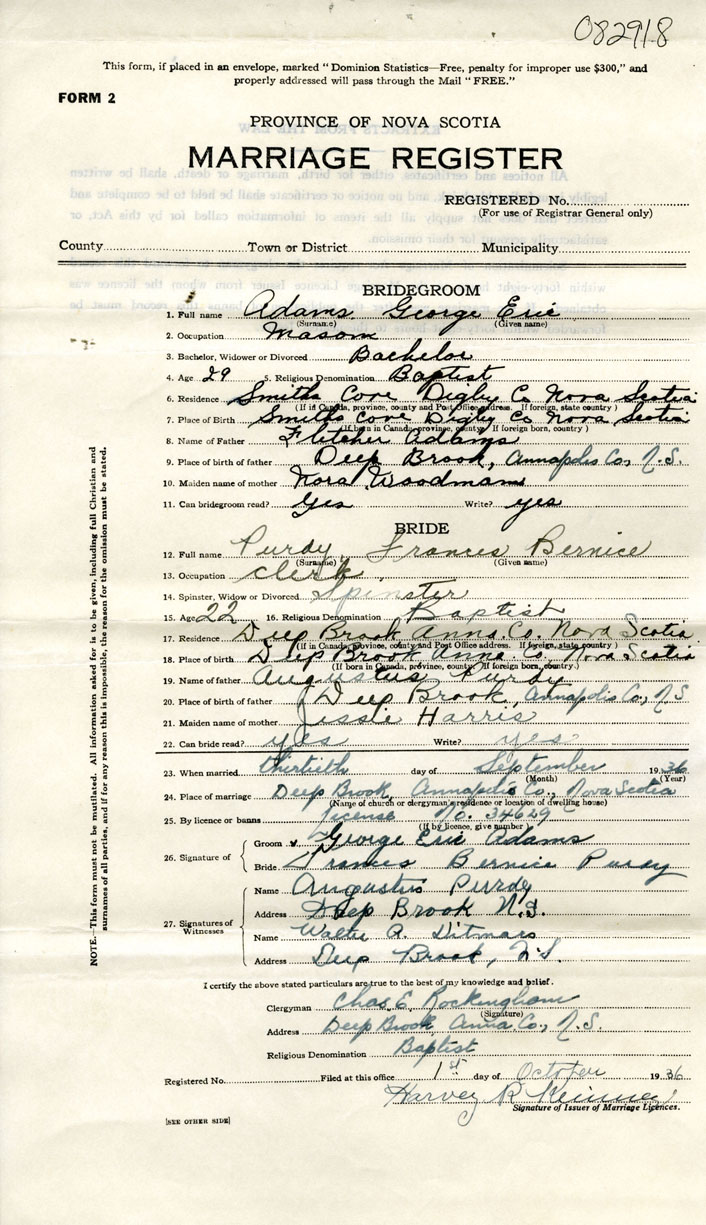 082918
This form, if placed in an envelope, marked "Dominion Statistics—Free, penalty for improper use $300," and
properly addressed will pass through the Mail "FREE."
FORM 2
PROVINCE OF NOVA SCOTIA
MARRIAGE REGISTER
REGISTERED No.
(For use of Registrar General only)
County Town or District Municipality
BRIDEGROOM
1. Full name Adams George Eric
(Surname) (Given name)
2. Occupation Mason
3. Bachelor, Widower or Divorced Bachelor
4. Age 29 5. Religious Denomination Baptist
6. Residence Smiths Cove Digby Co Nova Scotia
(If in Canada, province, county and Post Office address. If foreign, state country)
7. Place of Birth Smiths Cove Digby Co Nova Scotia
(If born in Canada, province, county. If foreign born, country.)
8. Name of Father Fletcher Adams
9. Place of birth of father Deep Brook, Annapolis Co, N.S.
10. Maiden name of mother Nora Woodman
11. Can bridegroom read? Yes Write? yes
BRIDE
12. Full name Purdy, Frances Bernice
(Surname) (Given name)
13. Occupation Clerk
14. Spinster, Widow or Divorced Spinster
15. Age 22 16. Religious Denomination Baptist
17. Residence Deep Brook Anna. Co. Nova Scotia
(If in Canada, province, county and Post Office address. If foreign, state country)
18. Place of birth Deep Brook Anna Co. Nova Scotia
(If born in Canada, province, county. If foreign born, country.)
19. Name of father Augustus Purdy
20. Place of birth of father Deep Brook, Annapolis Co., N.S
21. Maiden name of mother Jessie Harris
22. Can bride read? yes Write? yes
23. When married thirtieth day of September 1936
(Month) (Year)
24. Place of marriage Deep Brook, Annapolis Co., Nova Scotia
(Name of church or clergyman's residence or location of dwelling house)
25. By licence or banns license No. 34629
(If by licence, give number)
26. Signature of
Groom George Eric Adams
Bride Frances Bernice Purdy
27. Signatures of Witnesses
Name Augustus Purdy
Address Deep Brook N.S.
Name Walter A. Ditmars
Address Deep Brook, N.S.
I certify the above stated particulars are true to the best of my knowledge and belief.
Clergyman Chas. E. Rockingham
(Signature)
Address Deep Brook, Anna Co., N.S.
Religious Denomination Baptist
Registered No. Filed at this office 1st day of October 1936
Harvey R
Signature of Issuer of Marriage Licences.
[SEE OTHER SIDE]
NOTE.—This form must not be mutilated. All information asked for is to be given, including full Christian and
surnames of all parties, and if for any reason this is impossible, the reason for the omission must be stated.